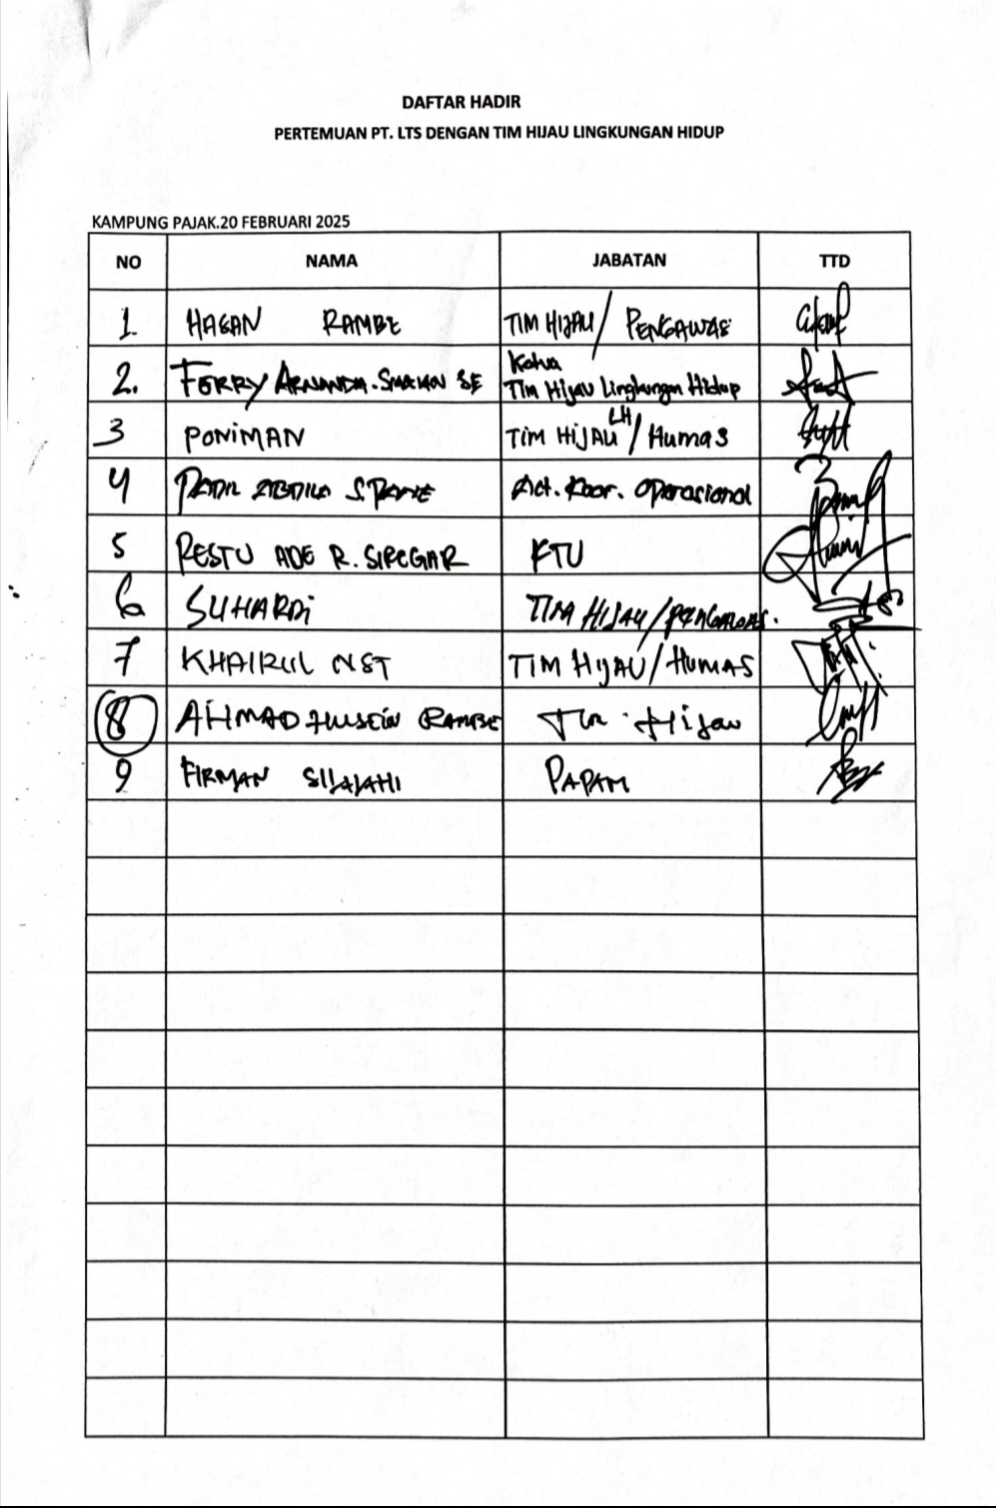 DAFTAR HADIR
PERTEMUAN PT. LTS DENGAN TIM HIJAU LINGKUNGAN HIDUP
KAMPUNG PAJAK.20 FEBRUARI 2025
NO NAMA JABATAN TTD
1. HASAN RAMBE TIM HIJAU / PENGAWAS
2. FERRY ARNANDA. SE Ketua
Tim Hijau Lingkungan Hidup
3 PONIMAN TIM HIJAU LH / Humas
4 Act. Koor. Operasional
5 RESTU ADE R. SIREGAR KTU
6 SUHARDI TIM HIJAU / PENGAWAS.
7 KHAIRUL NST TIM HIJAU / HUMAS
8 AHMAD HUSEIN RAMBE Tim Hijau
9 FIRMAN SILALAHI PAPAM